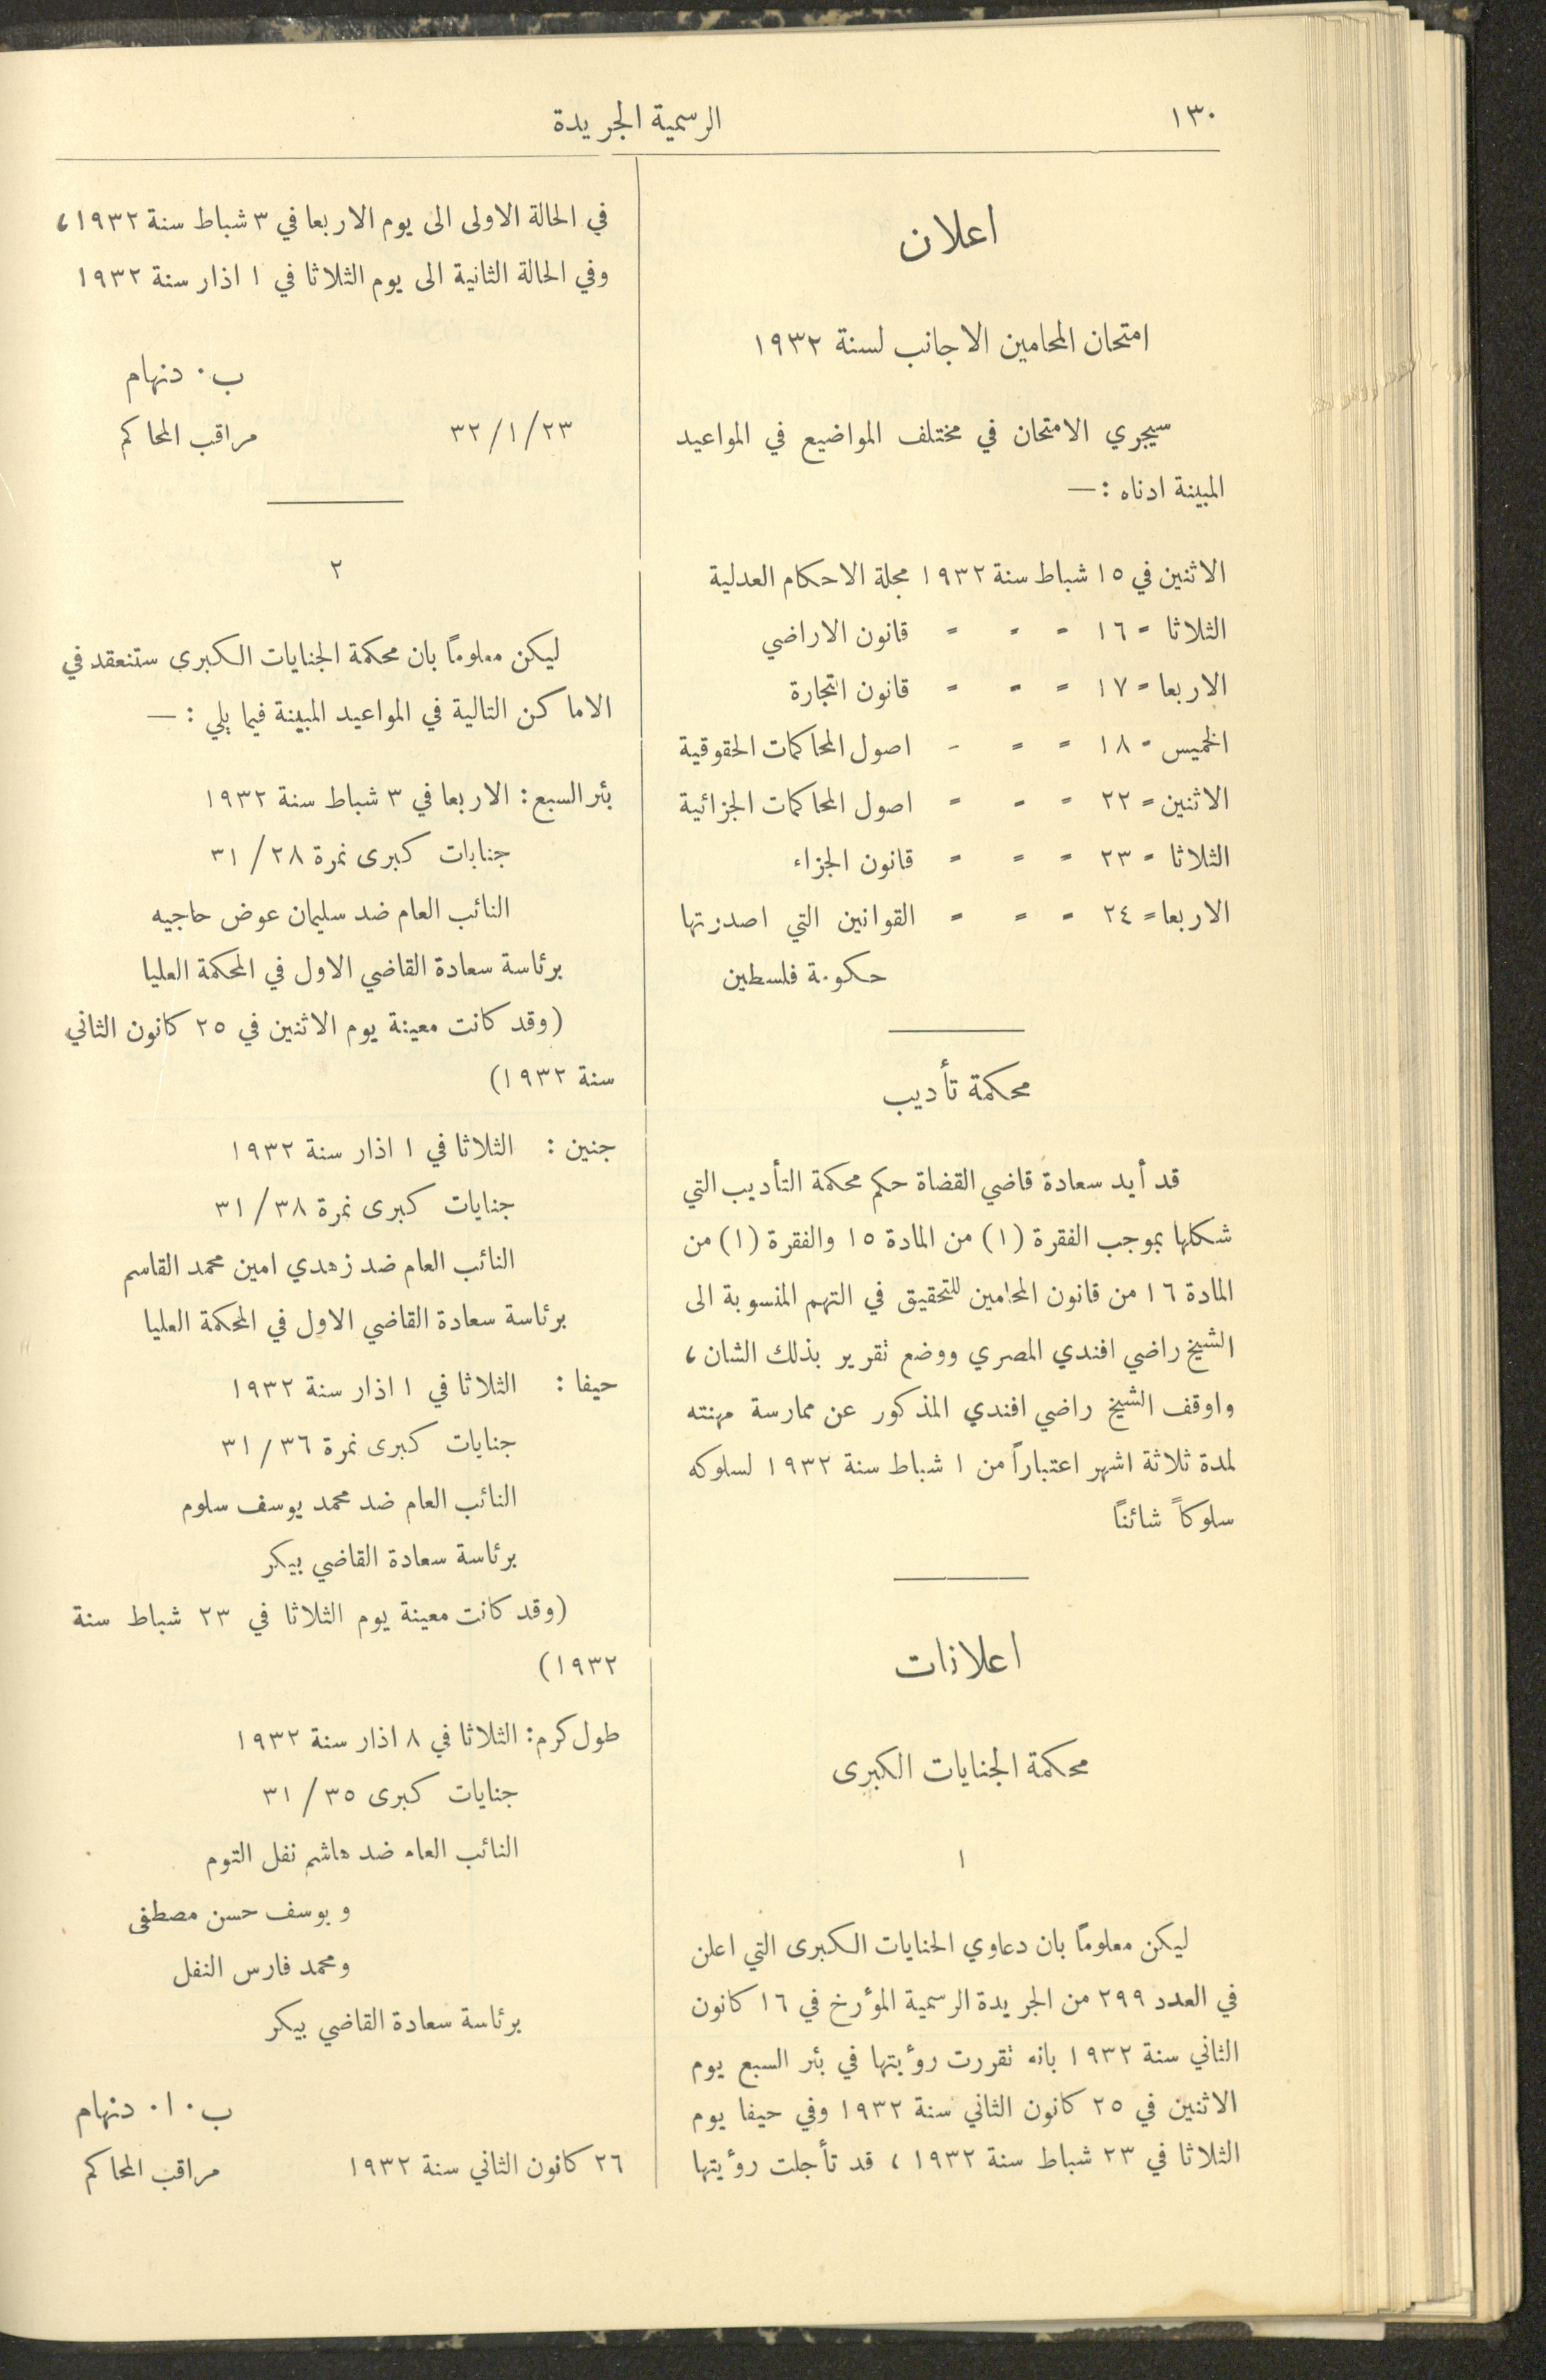 ١٣٠
الرسمية الجريدة
اعلان
امتحان المحامين الاجانب لسنة ١٩٣٢
سيجري الامتحان في مختلف المواضيع في المواعيد
المبينة ادناه : —
الاثنين في ١٥ شباط سنة ١٩٣٢ مجلة الاحكام العدلية
الثلاثا = ١٦ = = = قانون الاراضي
الاربعا = ١٧ = = = قانون التجارة
الخميس = ١٨ = = = اصول المحاكمات الحقوقية
الاثنين = ٢٢ = = = اصول المحاكمات الجزائية
الثلاثا = ٢٣ = = = قانون الجزاء
الاربعا = ٢٤ = = = القوانين التي اصدرتها
حكومة فلسطين
محكمة تأديب
قد أيد سعادة قاضي القضاة حكم محكمة التأديب التي
شكلها بموجب الفقرة (١) من المادة ١٥ والفقرة (١) من
المادة ١٦ من قانون المحامين للتحقيق في التهم المنسوبة الى
الشيخ راضي افندي المصري ووضع تقرير بذلك الشان ،
واوقف الشيخ راضي افندي المذكور عن ممارسة مهنته
لمدة ثلاثة اشهر اعتباراً من ١ شباط سنة ١٩٣٢ لسلوكه
سلوكاً شائناً
اعلانات
محكمة الجنايات الكبرى
١
ليكن معلوماً بان دعاوي الجنايات الكبرى التي اعلن
في العدد ٢٩٩ من الجريدة الرسمية المؤرخ في ١٦ كانون
الثاني سنة ١٩٣٢ بانه تقررت رؤيتها في بئر السبع يوم
الاثنين في ٢٥ كانون الثاني سنة ١٩٣٢ وفي حيفا يوم
الثلاثا في ٢٣ شباط سنة ١٩٣٢ ، قد تأجلت رؤيتها
في الحالة الاولى الى يوم الاربعا في ٣ شباط سنة ١٩٣٢ ،
وفي الحالة الثانية الى يوم الثلاثا في ١ اذار سنة ١٩٣٢
ب . دنهام
٣٢/١/٢٣ مراقب المحاكم
٢
ليكن معلوماً بان محكمة الجنايات الكبرى ستنعقد في
الاماكن التالية في المواعيد المبينة فيما يلي : —
بئر السبع : الاربعا في ٣ شباط سنة ١٩٣٢
جنايات كبرى نمرة ٣١/٢٨
النائب العام ضد سليمان عوض حاجيه
برئاسة سعادة القاضي الاول في المحكمة العليا
(وقد كانت معينة يوم الاثنين في ٢٥ كانون الثاني
سنة ١٩٣٢)
جنين : الثلاثا في ١ اذار سنة ١٩٣٢
جنايات كبرى نمرة ٣١/٣٨
النائب العام ضد زهدي امين محمد القاسم
برئاسة سعادة القاضي الاول في المحكمة العليا
حيفا : الثلاثا في ١ اذار سنة ١٩٣٢
جنايات كبرى نمرة ٣١/٣٦
النائب العام ضد محمد يوسف سلوم
برئاسة سعادة القاضي بيكر
(وقد كانت معينة يوم الثلاثا في ٢٣ شباط سنة
١٩٣٢)
طول كرم : الثلاثا في ٨ اذار سنة ١٩٣٢
جنايات كبرى ٣١/٣٥
النائب العام ضد هاشم نفل التوم
ويوسف حسن مصطفى
ومحمد فارس النفل
برئاسة سعادة القاضي بيكر
ب . ا . دنهام
٢٦ كانون الثاني سنة ١٩٣٢ مراقب المحاكم